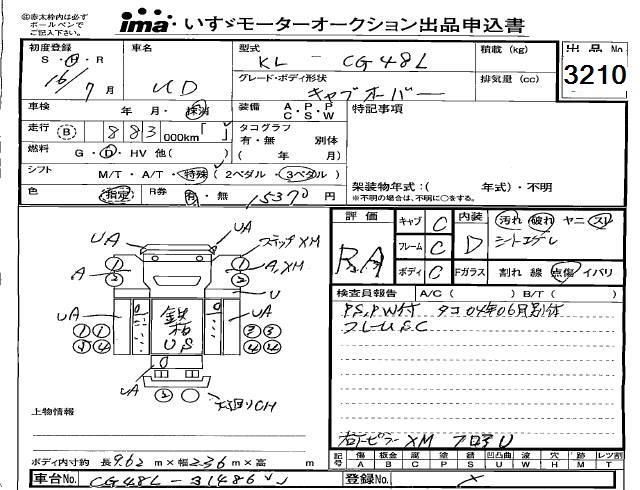 ㊟赤太枠内は必ず
ボールペンで
ご記入下さい。
ima・いすゞモーターオークション出品申込書
初度登録
S・H・R
16年 7月
車名
UD
型式
KL - CG48L
グレード・ボディ形状
キャブオーバー
積載 (kg)
排気量 (cc)
出品No
3210
車検 年 月・抹消
装備 A・P・P
C・S・W
特記事項
走行 B 883 000km「 」
タコグラフ
有・無 別体
( 年 月)
燃料 G・D・HV 他( )
シフト M/T・A/T・特殊 (2ペダル・3ペダル)
色 (指定) R券 有・無 15370円
架装物年式:( 年式)・不明
※不明の場合は、不明に○をする。
評価
RA
キャブ C
フレーム C
ボディ C
内装 D
汚れ 破れ ヤニ スレ
Fガラス 割れ 線 点傷 イバリ
検査員報告 A/C ( ) B/T ( )
PS,PW付 タコ04年06月別体
フレームSC
右Fピラー XM フロアU
UA
UA
ステップXM
A
A,XM
U
UA
UA
鉄
板
US
UA
上物情報
ボディ内寸約 長9.62 m×幅2.36 m×高 m
記号 傷 板金 腐 塗 錆 凹凸曲 波 穴 跡 レンズ割
A B C P S U W H M T
車台No. CG48L-31486
登録No. ×